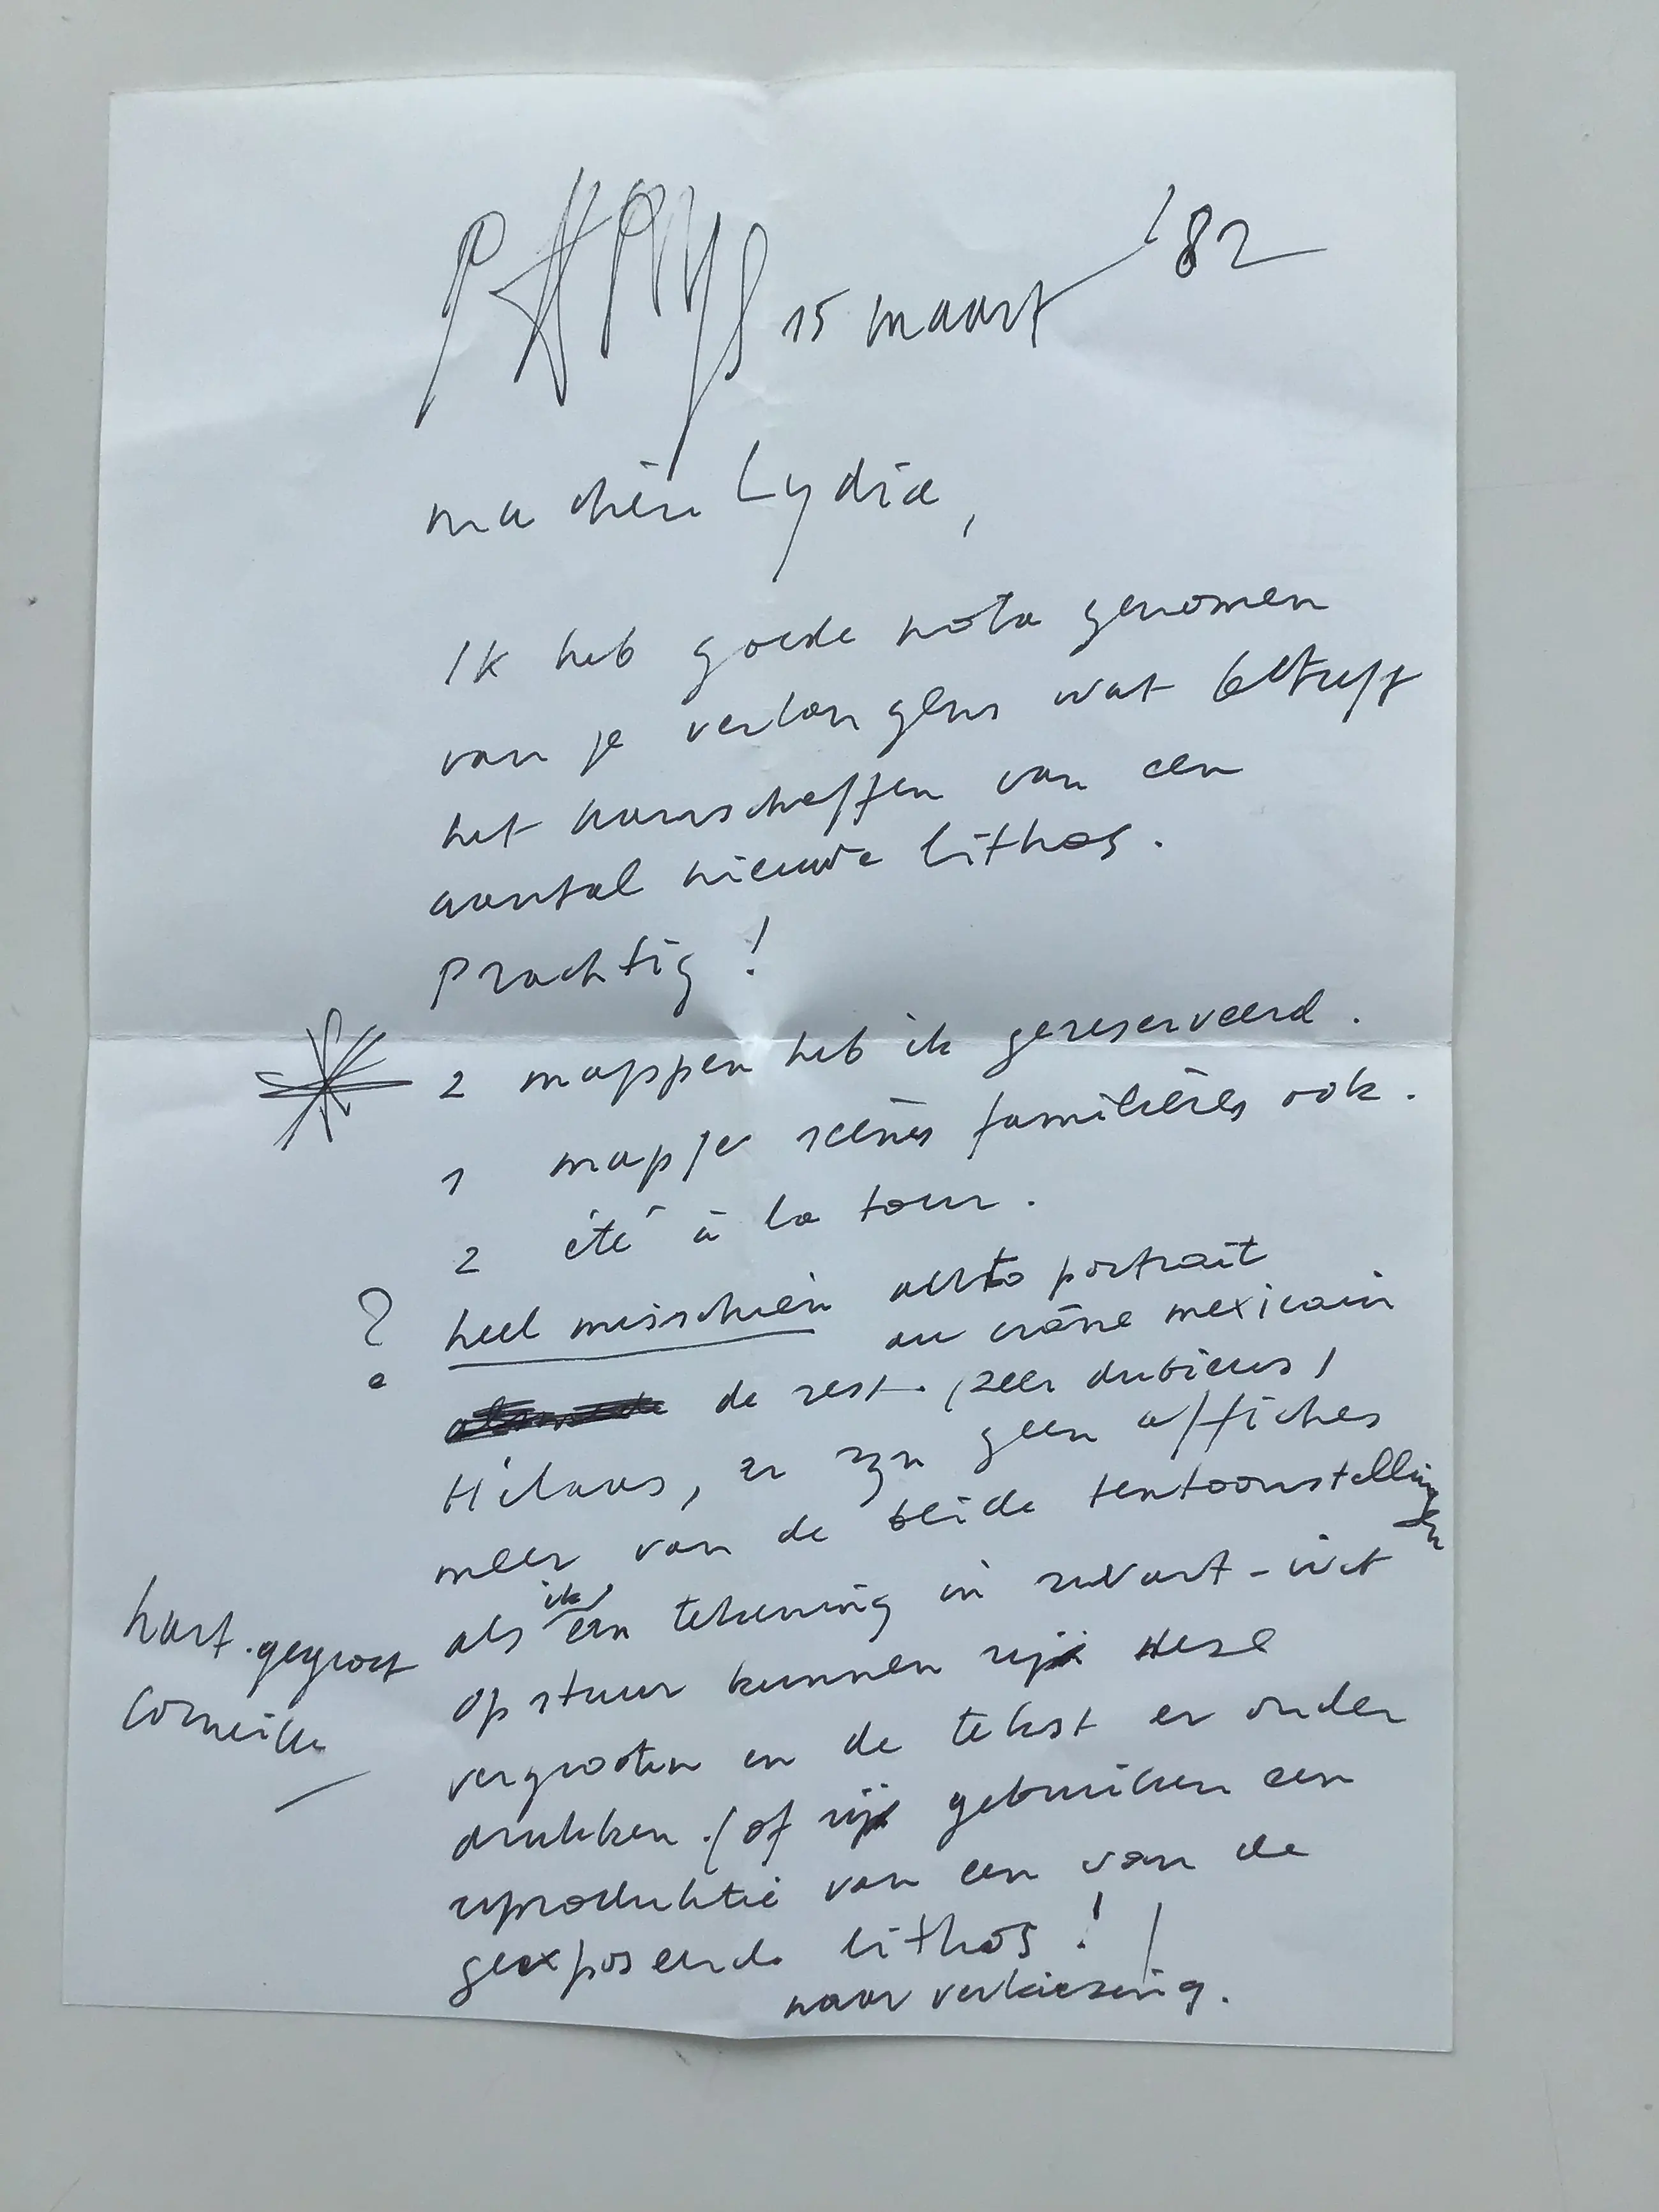 PARYS 15 maart '82
ma chère Lydia,
Ik heb goede nota genomen
van je verlangens wat betreft
het aanschaffen van een
aantal nieuwe lithos.
Prachtig!
2 mappen heb ik gereserveerd.
1 mapje scènes familières ook.
2 été à la tour.
? heel misschien auto portrait
au crâne mexicain
de rest. (zeer dubieus)
Hélaas, er zyn geen affiches
meer van de beide tentoonstellingen
als ik een tekening in zwart-wit
opstuur kunnen zij deze
vergrooten en de tekst er onder
drukken. (of zij gebruiken een
reproduktie van een van de
geexposeerde lithos! )
naar verkiezing.
hart. gegroet
Corneille